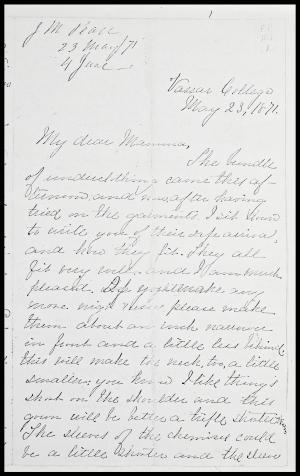 J M Pease
23 May/71
4 June
Vassar College
May 23, 1871.
My dear Mamma,
The bundle
of underclothing came this af-
ternoon, and now, after having
tried on the garments, I sit down
to write you of their safe arrival,
and how they fit. They all
fit very well, and I am much
pleased. If you make any
more night please make
them about an inch narrower
in front and a little less behind
this will make the neck, too, a little
smaller; you know I like things
short on the shoulder and this
gown will be better a trifle shorter
The sleeves of the chemises could
be a little shorter and the sleeves